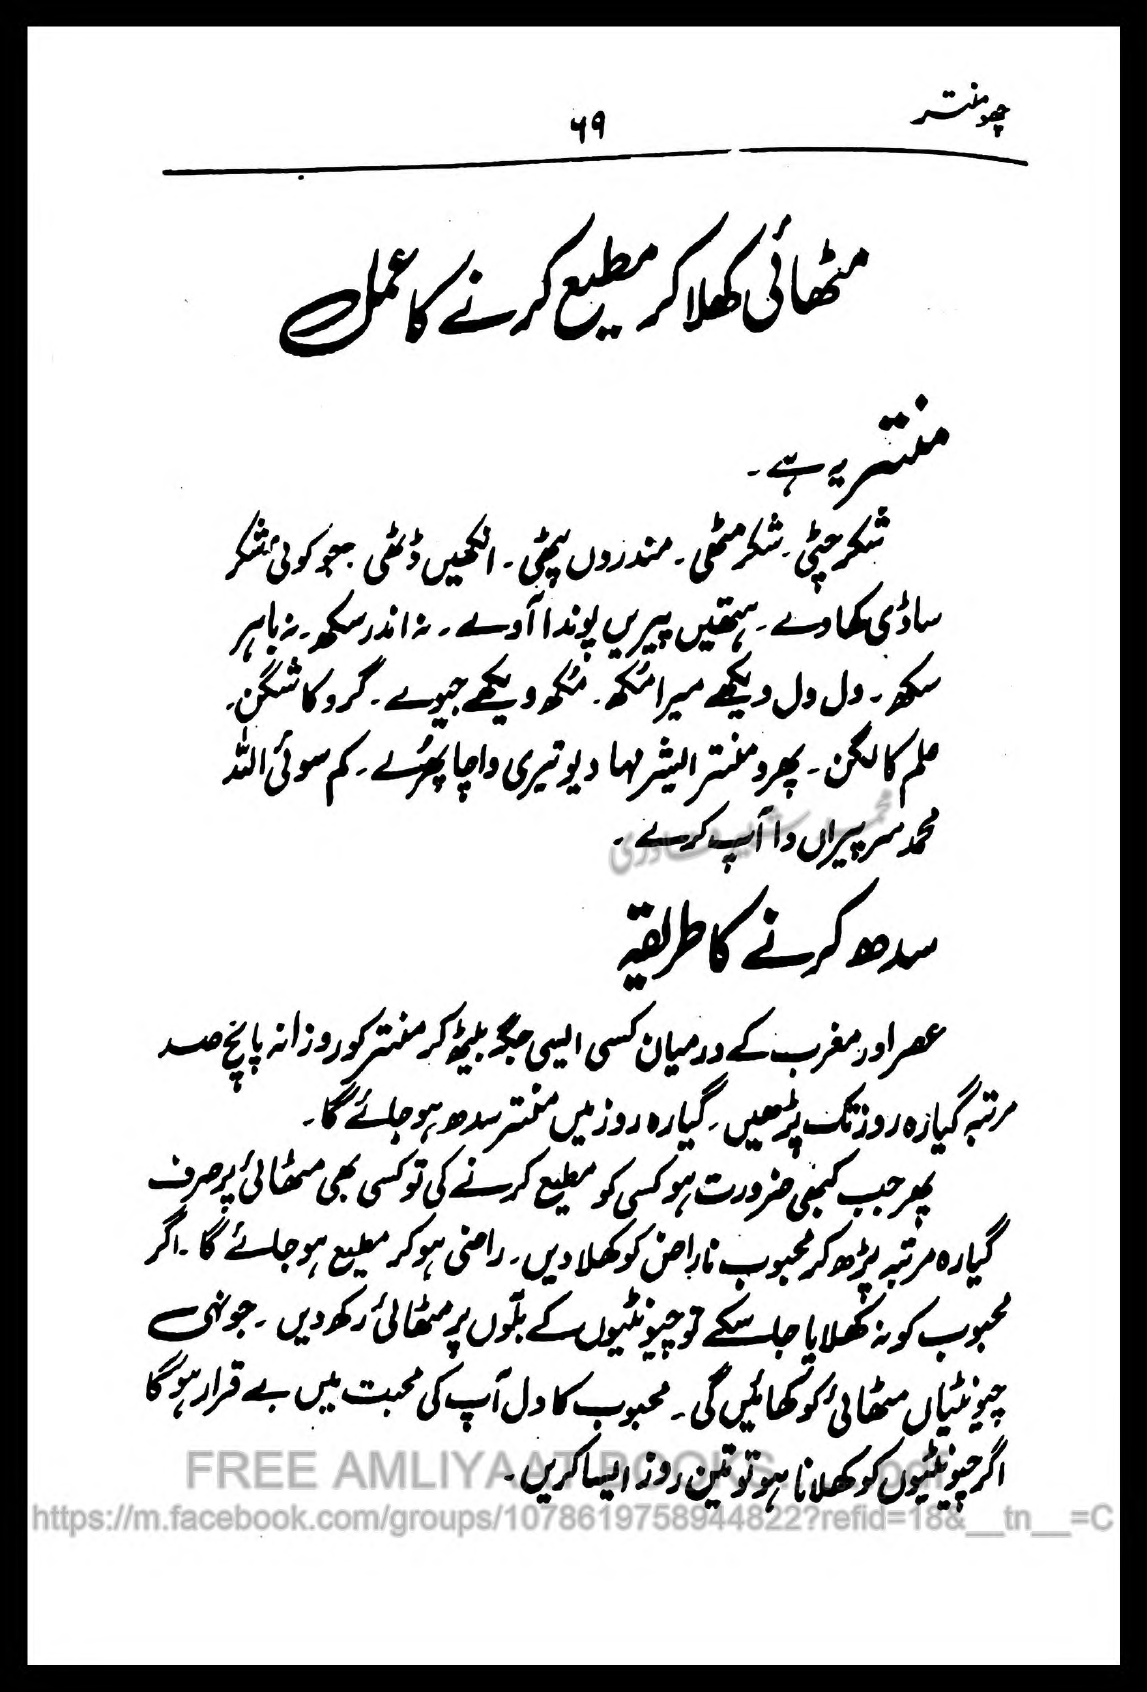 چھومنتر
۶۹
مٹھائی کھلا کر مطیع کرنے کا عمل
منتر یہ ہے۔
شکر چٹی۔ شکر مٹھی۔ مندروں پٹھی۔ انکھیں ڈٹھی جو کوئی شکر
ساڈی کھاوے۔ ہتھیں پیریں پوندا آوے۔ نہ اندر سکھ۔ نہ باہر
سکھ۔ ول ول دیکھے میرا مُکھ۔ مُکھ ویکھے جیوے۔ گرو کا شگن۔
علم کا لگن۔ پھرو منتر ایشر مہا دیو تیری واچا پھُرے۔ کم سوئی اللہ
محمد سر پیراں دا آپ کرے۔
سدھ کرنے کا طریقہ
عصر اور مغرب کے درمیان کسی ایسی جگہ بیٹھ کر منتر کو روزانہ پانچ صد
مرتبہ گیارہ روز تک پڑھیں۔ گیارہ روز میں منتر سدھ ہو جائے گا۔
پھر جب کبھی ضرورت ہو کسی کو مطیع کرنے کی تو کسی بھی مٹھائی پر صرف
گیارہ مرتبہ پڑھ کر محبوب ناراض کو کھلا دیں۔ راضی ہو کر مطیع ہو جائے گا۔ اگر
محبوب کو نہ کھلایا جا سکے تو چیونٹیوں کے بلّوں پر مٹھائی رکھ دیں۔ جونہی
چیونٹیاں مٹھائی کو کھائیں گی۔ محبوب کا دل آپ کی محبت میں بے قرار ہو گا
اگر چیونٹیوں کو کھلانا ہو تو تین روز ایسا کریں۔
FREE AMLIYAAT BOOKS
https://m.facebook.com/groups/1078619758944822?refid=18&__tn__=C